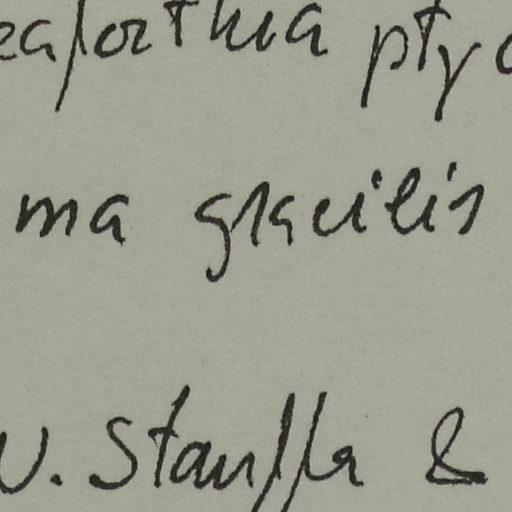 eaforthia ptyc
ma gracilis
W. Stauffa &